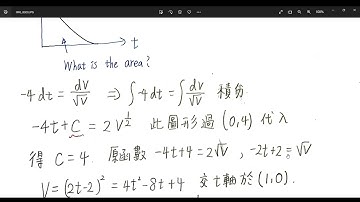 t
A
What is the area?
-4dt = dV/√V ⇒ ∫-4dt = ∫dV/√V 積分
-4t+C = 2V^{1/2} 此圖形過 (0,4) 代入
得 C=4. 原函數 -4t+4=2√V , -2t+2=√V
V=(2t-2)²=4t²-8t+4 交t軸於(1,0).